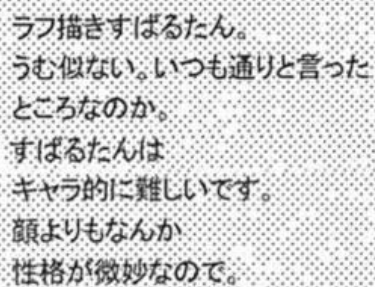 ラフ描きすばるたん。
うむ似ない。いつも通りと言った
ところなのか。
すばるたんは
キャラ的に難しいです。
顔よりもなんか
性格が微妙なので。